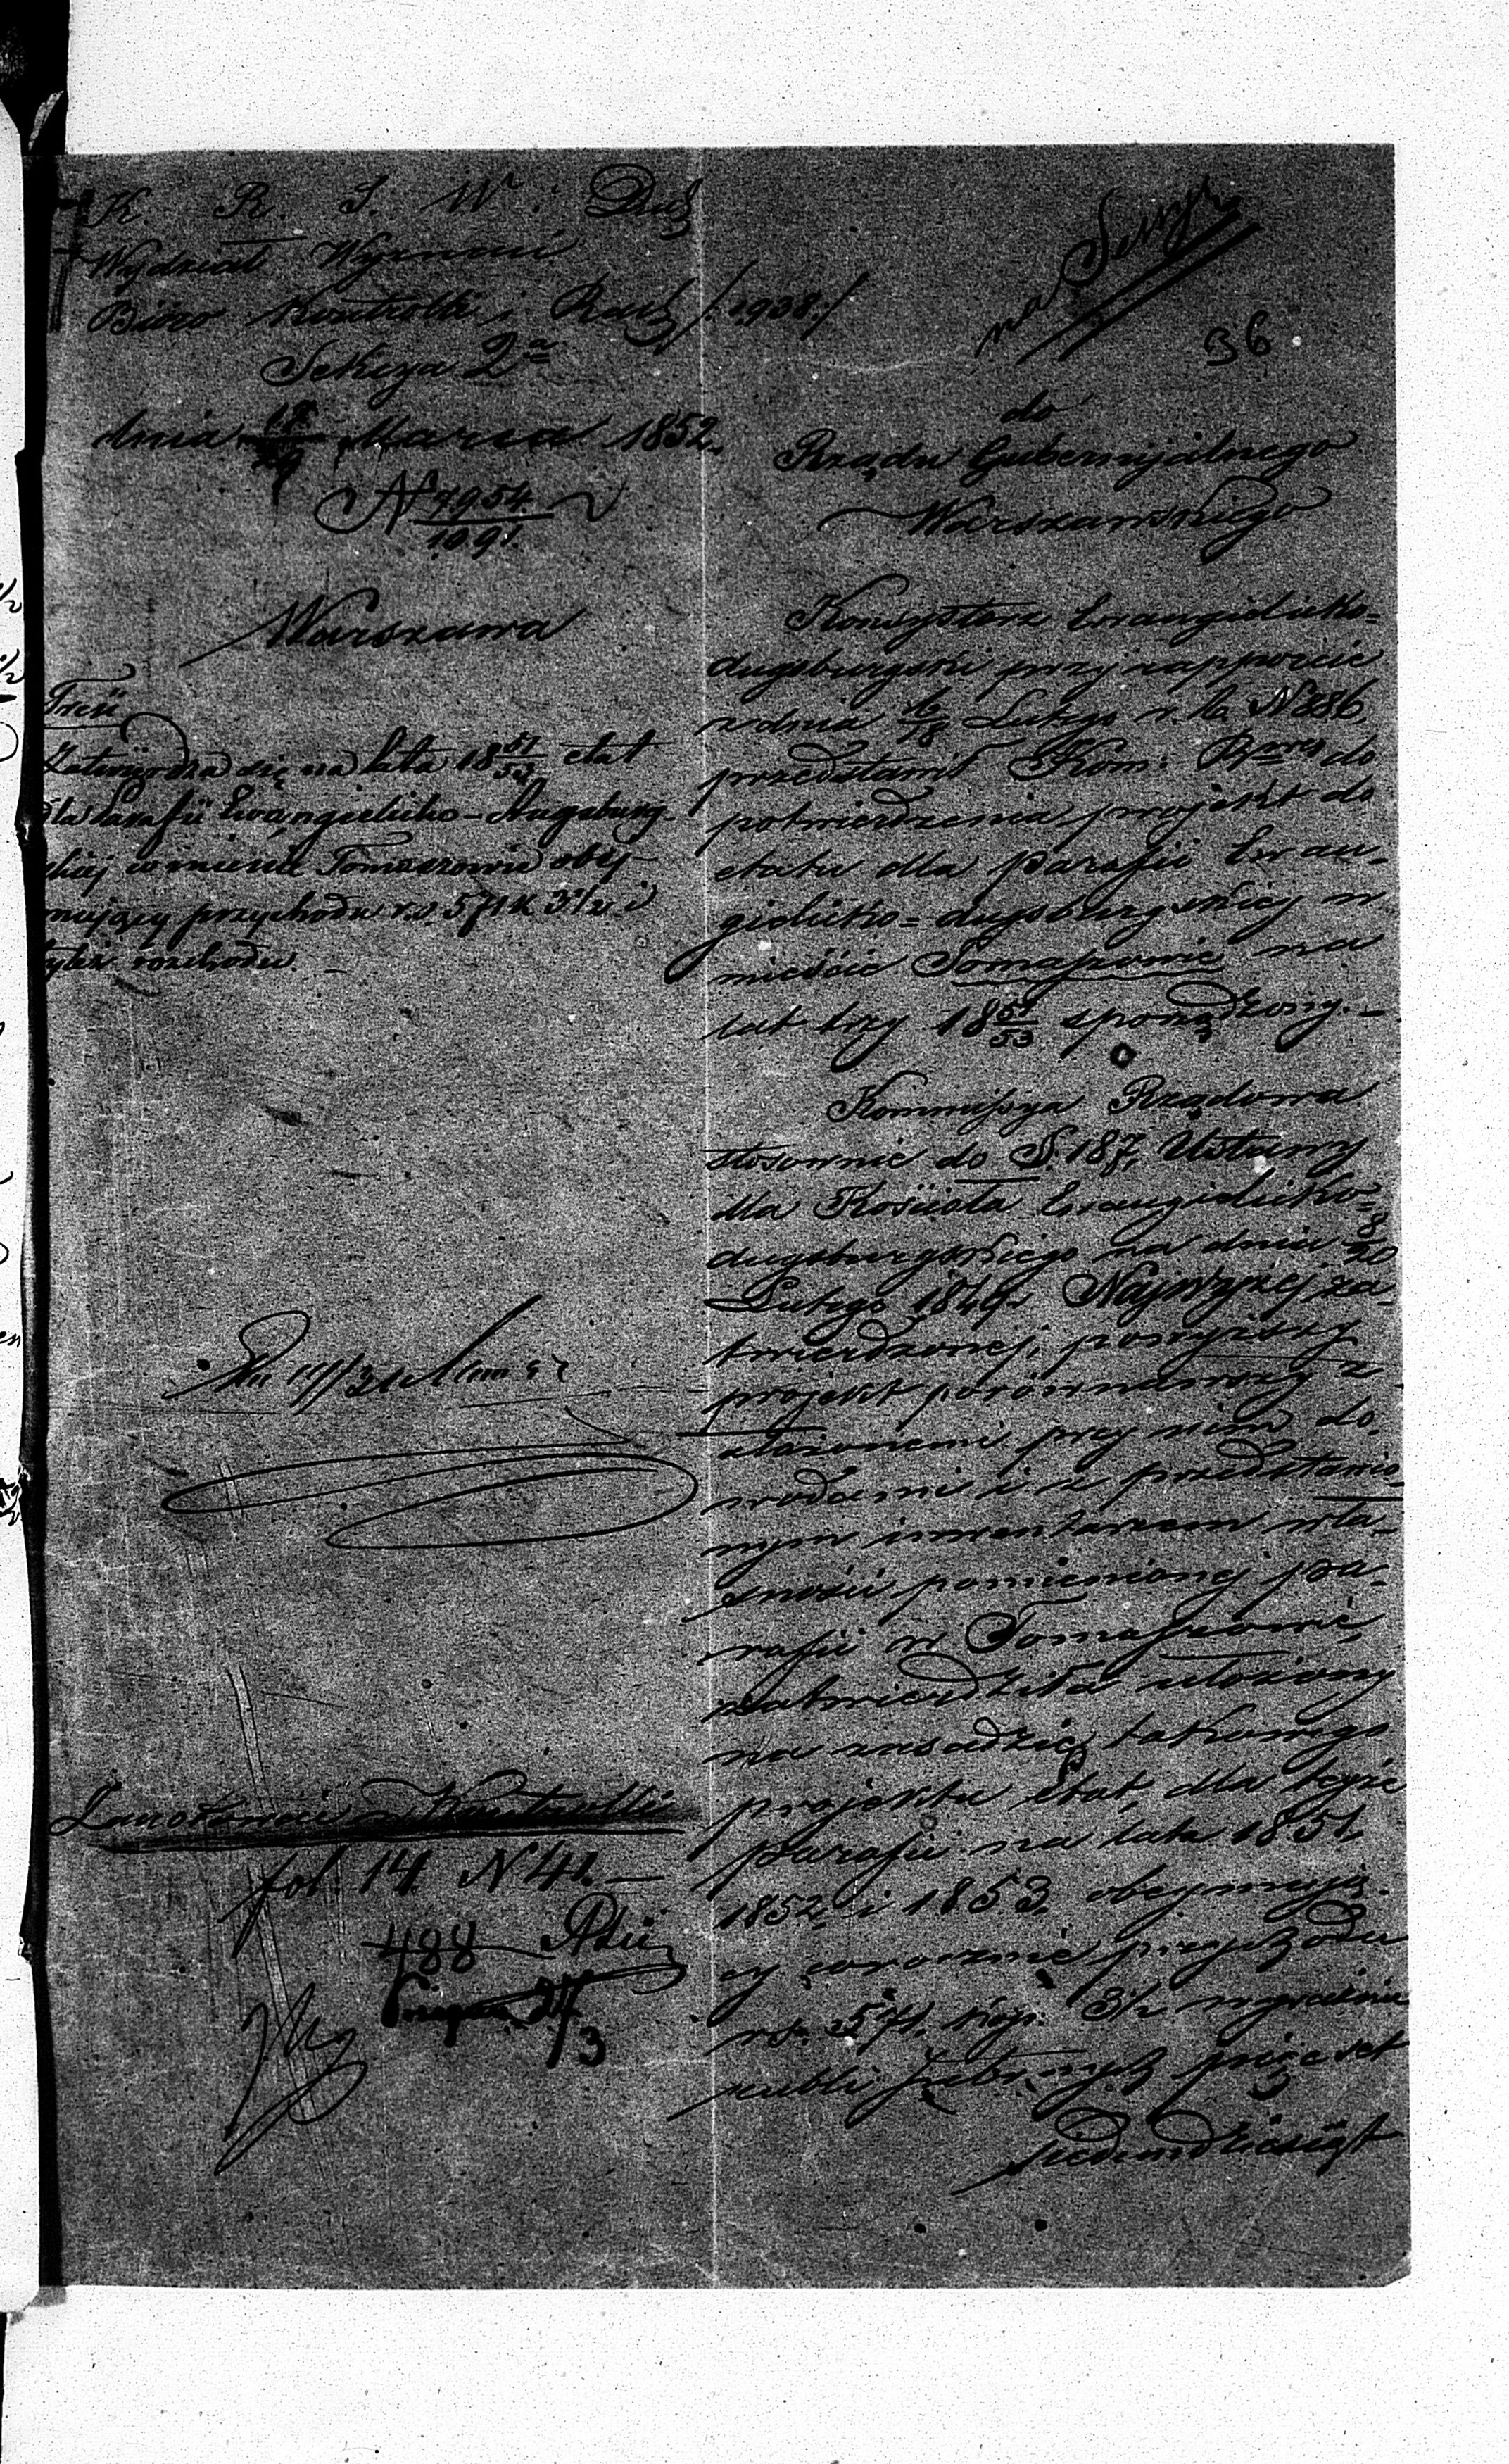 K. R. S. W. i Duch
Wydział Wyznań
Biuro Kontrolli i Rach /1938./
Sekcya 2a
dnia Marca 1852.
N 7954/1091
Warszawa
Treść
Zatwierdza się na lata 18 51/53 etat
dla Parafii Ewangielicko-Augsburg-
skiej w mieście Tomaszowie obej-
mujący przychodu rs. 571 k 3 1/2 i
tyleż rozchodu. —
Zanotować w Kontrolli
fol. 14 N 41. —
488
na
36
do
Rządu Gubernijalnego
Warszawskiego
Konsystorz Ewangielicko=
Augsburgski przy rapporcie
z dnia 6/18 Lutego r. b. N 886,
przedstawił Kom: Rwej do
potwierdzenia projekt do
etatu dla parafii Ewan-
gielicko=Augsburgskiej w
mieście Tomaszowie na
lat trzy 18 51/53 sporządzony. —
Kommissya Rządowa
stosownie do §. 187, Ustawy
dla Kościoła Ewangielicko=
Augsburgskiego na dniu 8/20
Lutego 1849 r. Najwyżej za-
twierdzonej, powyższy
projekt porównawszy z
złożonemi przy nim do-
wodami i z przedstawio-
nym inwentarzem wła-
sności pomienionej pa-
rafii w Tomaszowie,
zatwierdziła ułożony
na zasadzie takowego
projektu Etat, dla tejże
parafii na lata 1851,
1852, i 1853. obejmują-
cy corocznie przychodu
rs. 571. kop. 3 1/2 wyraźnie
rubli srebrnych pięćset
siedemdziesiąt